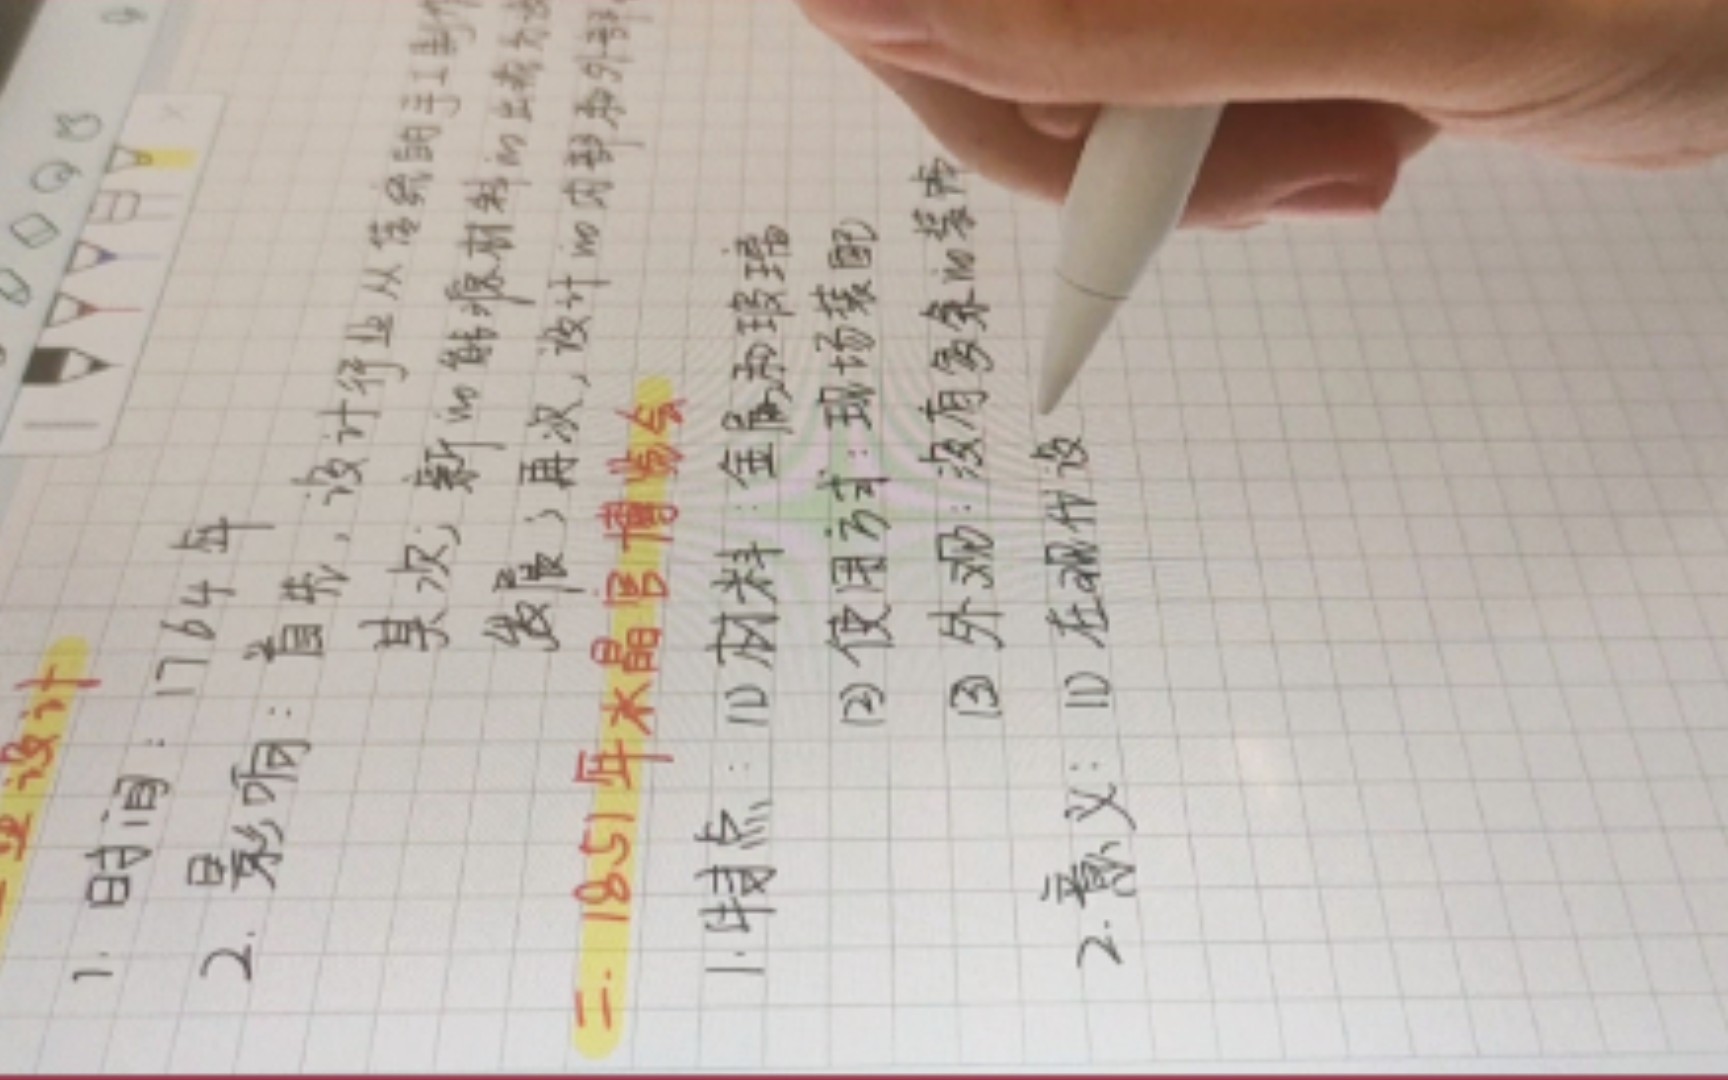 业设计
1. 时间：1764年
2. 影响：首先，设计行业从落后的手工制作
其次；新in能源材料in出现为
发展；再次，设计in内部和外部
二. 1851年水晶宫博览会
1. 特点：(1)材料：金属和玻璃
(2)使用方式：现场装配
(3)外观：没有多余in装饰
2. 意义：(1)在现代设